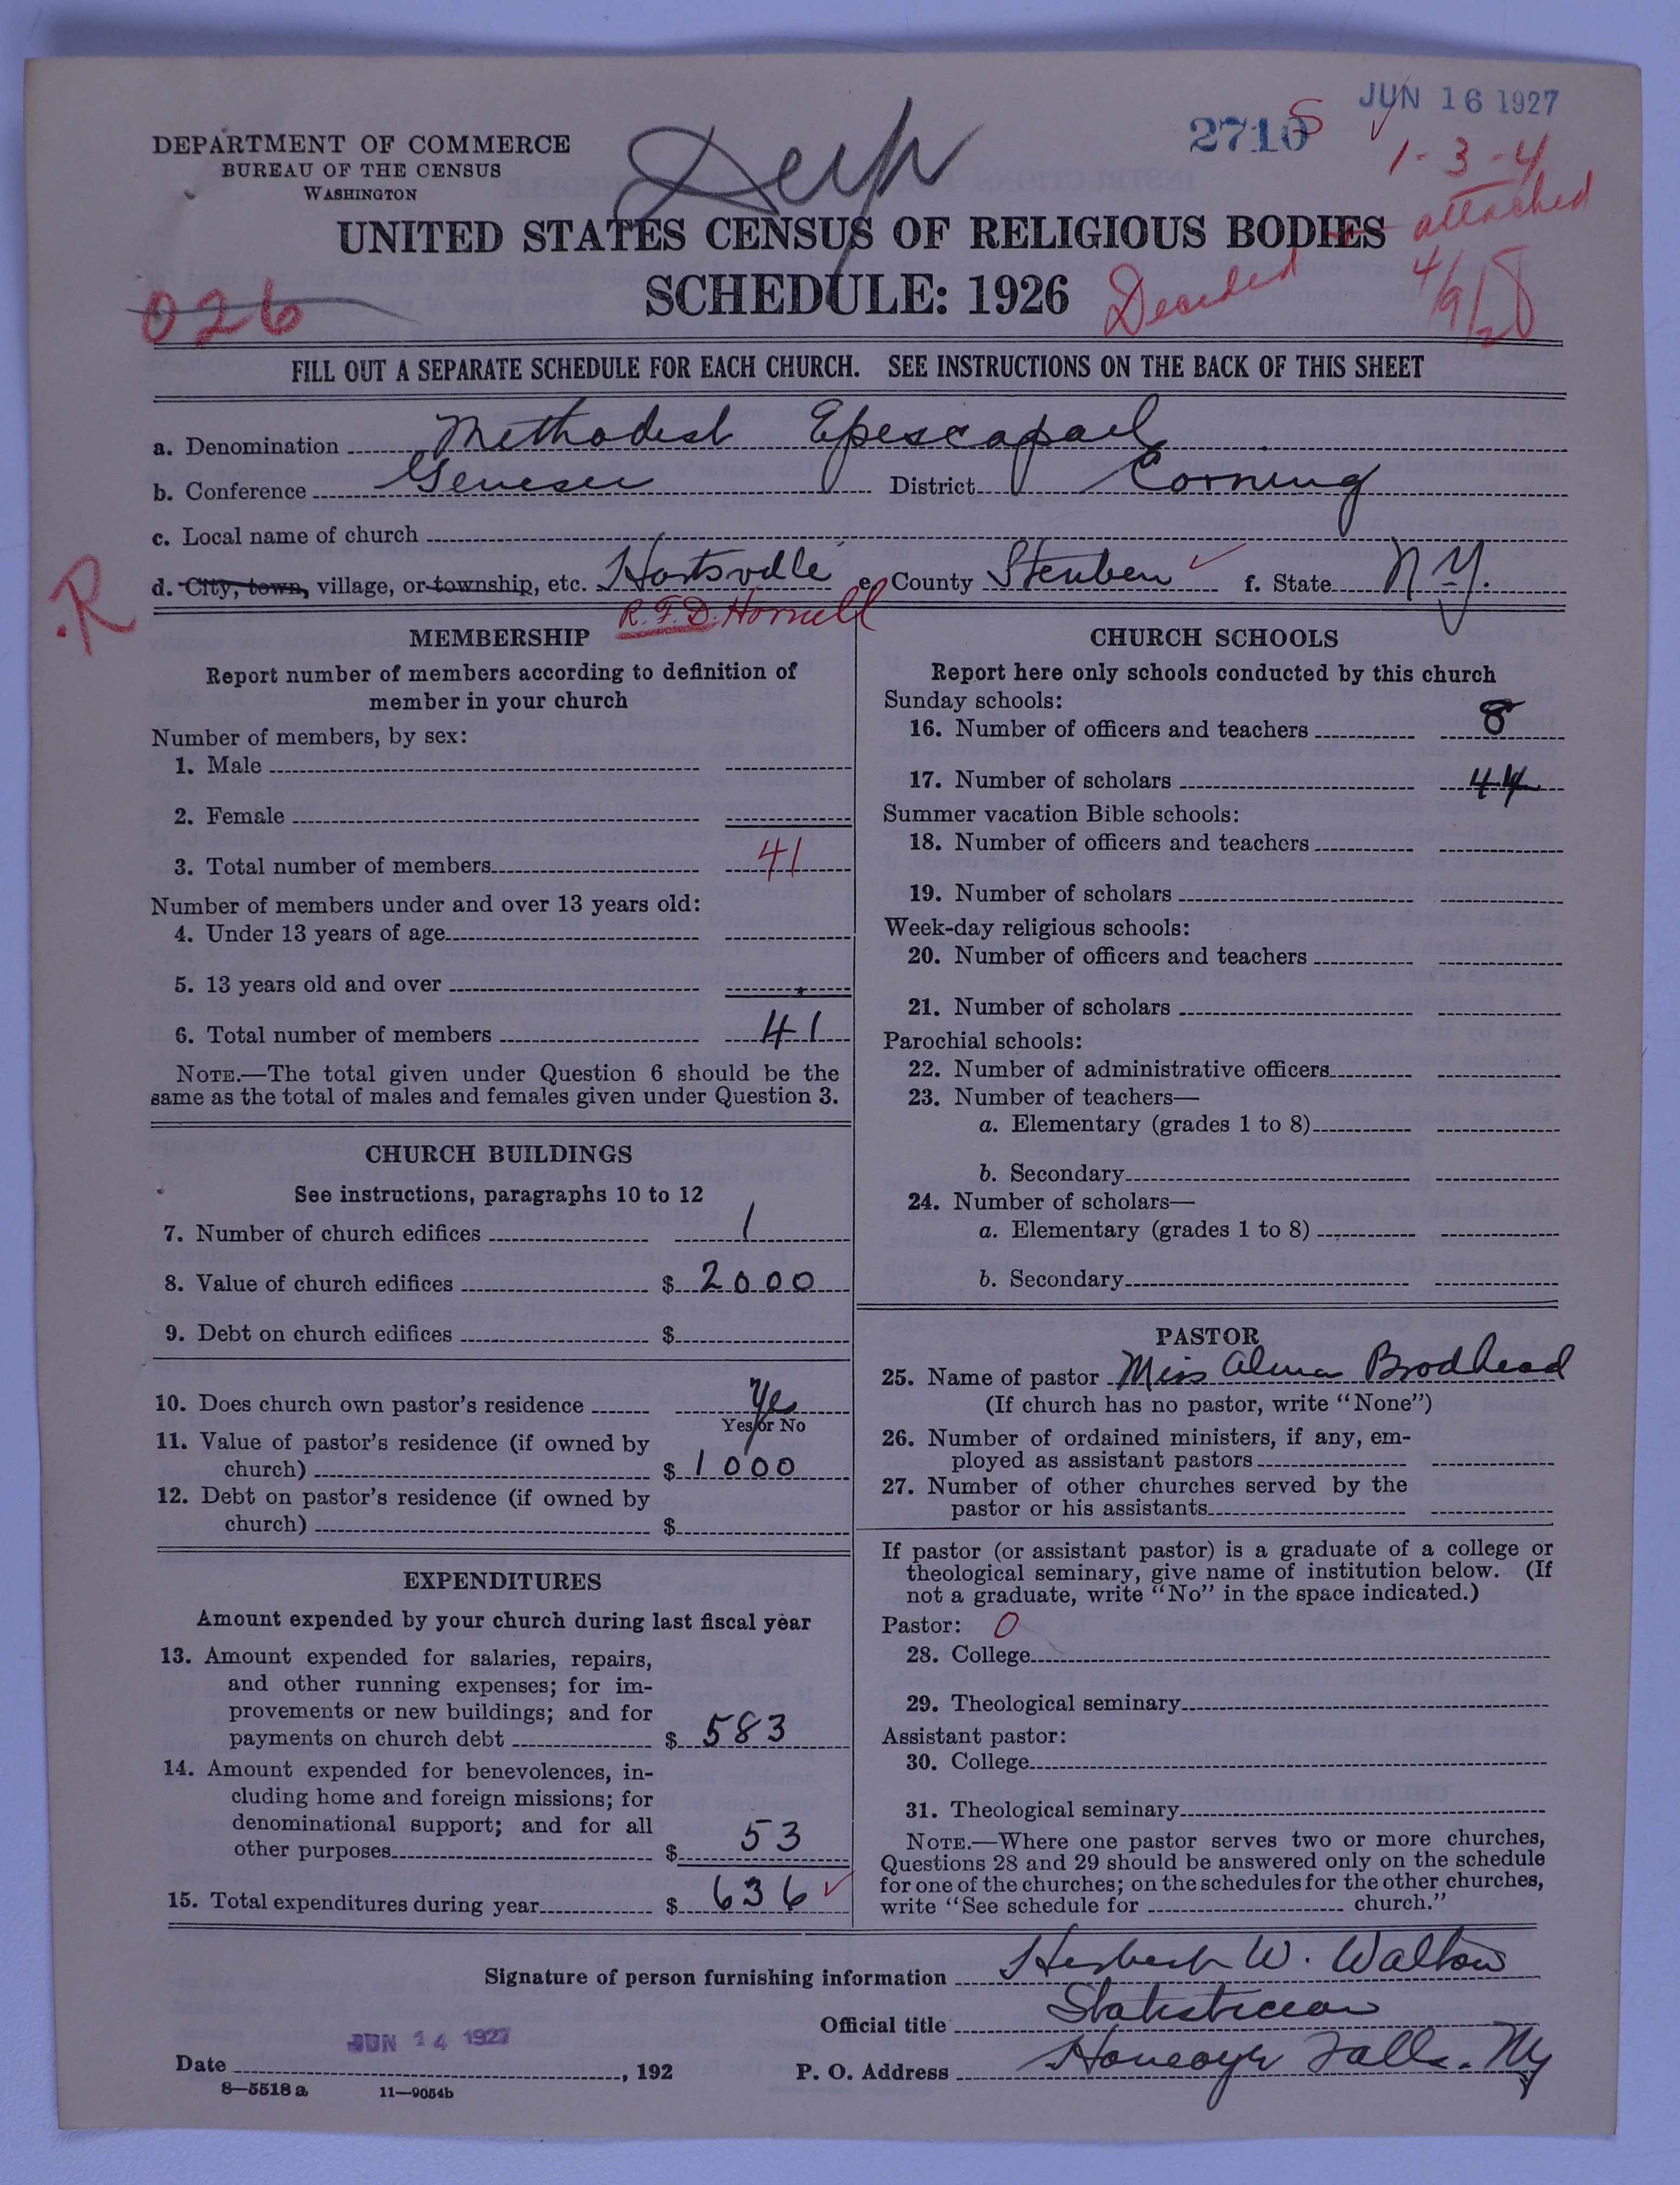 JUN 16 1927
2710 S
1-3-4
attached
4/9/28
DEPARTMENT OF COMMERCE
BUREAU OF THE CENSUS
WASHINGTON
UNITED STATES CENSUS OF RELIGIOUS BODIES
SCHEDULE: 1926
026
FILL OUT A SEPARATE SCHEDULE FOR EACH CHURCH. SEE INSTRUCTIONS ON THE BACK OF THIS SHEET
a. Denomination Methodist Epescopael
b. Conference Genesee District Corning
c. Local name of church
d. City, town, village, or township, etc. Hartsville e. County Steuben f. State N.Y.
R
R.F.D. Hornell
MEMBERSHIP
Report number of members according to definition of
member in your church
Number of members, by sex:
1. Male
2. Female
3. Total number of members 41
Number of members under and over 13 years old:
4. Under 13 years of age
5. 13 years old and over
6. Total number of members 41
NOTE.—The total given under Question 6 should be the
same as the total of males and females given under Question 3.
CHURCH BUILDINGS
See instructions, paragraphs 10 to 12
7. Number of church edifices 1
8. Value of church edifices $ 2000
9. Debt on church edifices $
10. Does church own pastor's residence Ye
Yes or No
11. Value of pastor's residence (if owned by
church) $ 1000
12. Debt on pastor's residence (if owned by
church) $
EXPENDITURES
Amount expended by your church during last fiscal year
13. Amount expended for salaries, repairs,
and other running expenses; for im-
provements or new buildings; and for
payments on church debt $ 583
14. Amount expended for benevolences, in-
cluding home and foreign missions; for
denominational support; and for all
other purposes $ 53
15. Total expenditures during year $ 636
CHURCH SCHOOLS
Report here only schools conducted by this church
Sunday schools:
16. Number of officers and teachers 8
17. Number of scholars 44
Summer vacation Bible schools:
18. Number of officers and teachers
19. Number of scholars
Week-day religious schools:
20. Number of officers and teachers
21. Number of scholars
Parochial schools:
22. Number of administrative officers
23. Number of teachers—
a. Elementary (grades 1 to 8)
b. Secondary
24. Number of scholars—
a. Elementary (grades 1 to 8)
b. Secondary
PASTOR
25. Name of pastor Miss Alma Brodhead
(If church has no pastor, write "None")
26. Number of ordained ministers, if any, em-
ployed as assistant pastors
27. Number of other churches served by the
pastor or his assistants
If pastor (or assistant pastor) is a graduate of a college or
theological seminary, give name of institution below. (If
not a graduate, write "No" in the space indicated.)
Pastor: 0
28. College
29. Theological seminary
Assistant pastor:
30. College
31. Theological seminary
NOTE.—Where one pastor serves two or more churches,
Questions 28 and 29 should be answered only on the schedule
for one of the churches; on the schedules for the other churches,
write "See schedule for church."
Signature of person furnishing information Herbert W. Walton
Official title Statistician
Date JUN 14 1927, 192 P. O. Address Honeoye Falls. NY
8—5518 a 11—9054b